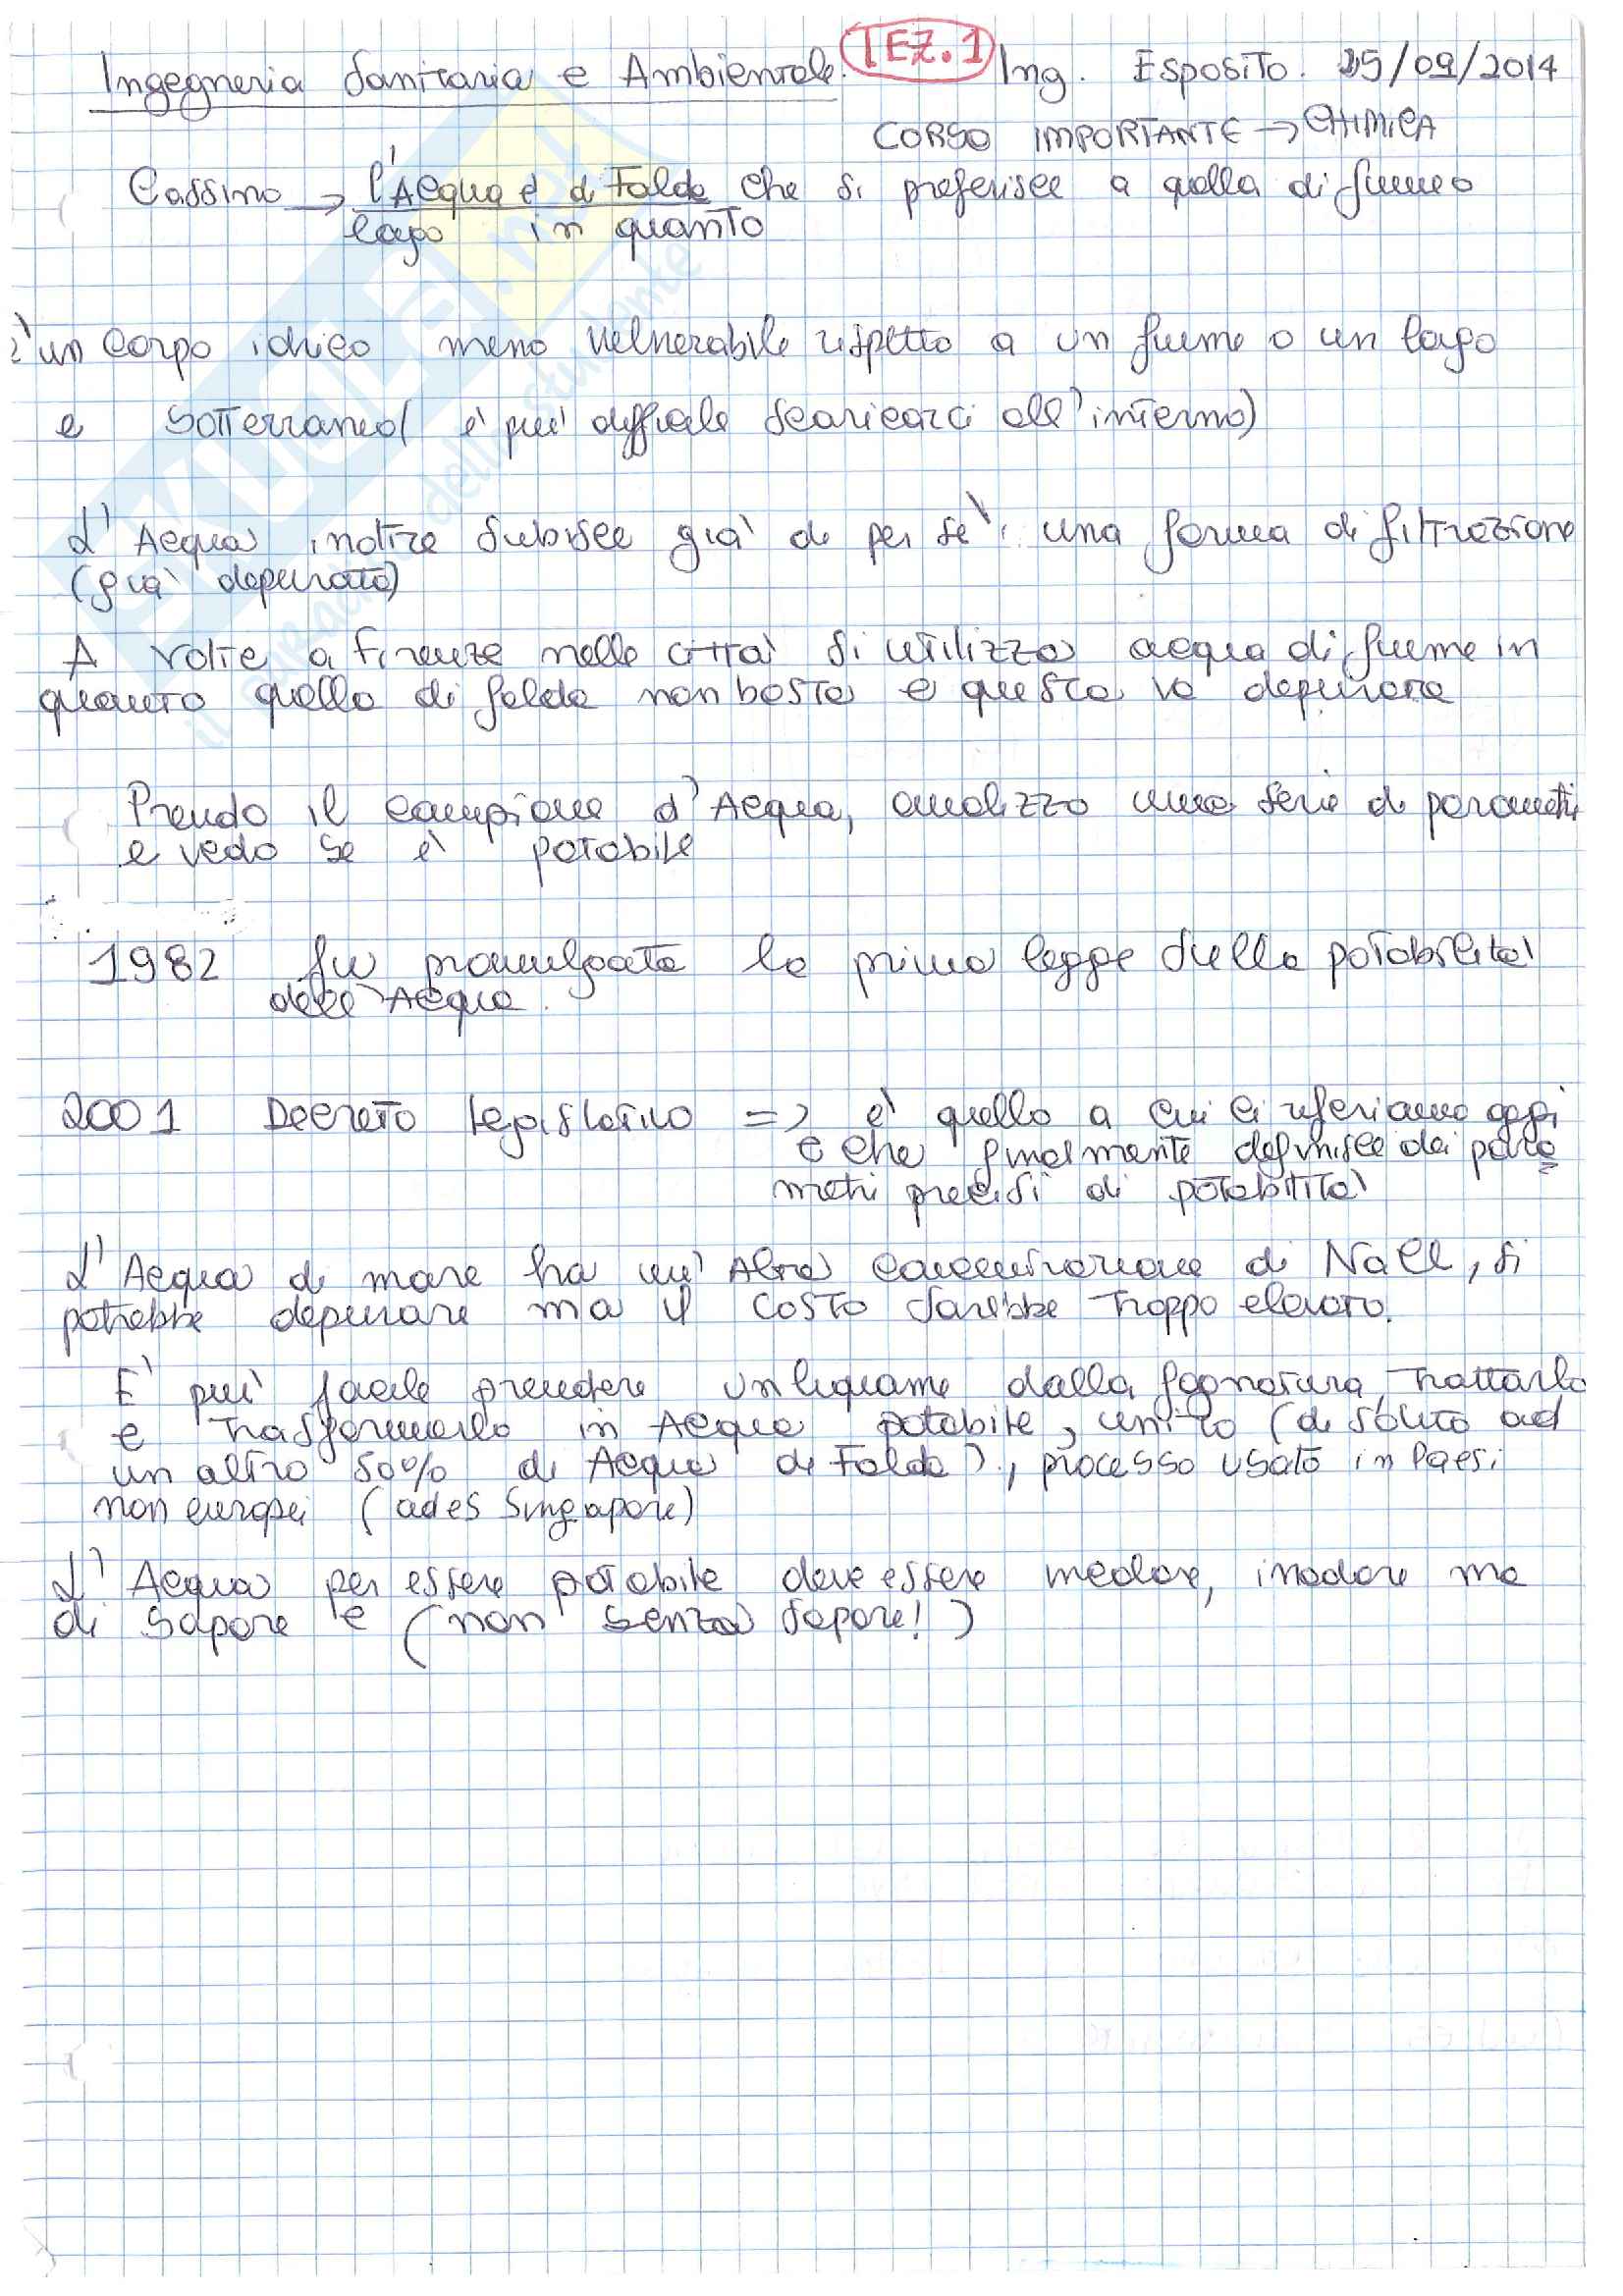 Ingegneria Sanitaria e Ambientale. LEZ. 1 Ing. Esposito. 25/09/2014
CORSO IMPORTANTE → CHIMICA
Cassino → l'Acqua è di Falda che si preferisce a quella di fiume o
lago in quanto
è un corpo idrico meno vulnerabile rispetto a un fiume o un lago
e sotterraneo ( è più difficile scaricarci all'interno)
L'Acqua inoltre subisce già di per sè una forma di filtrazione
(già depurata)
A volte a Firenze nelle città si utilizza acqua di fiume in
quanto quella di falda non basta e questa va depurata
Prendo il campione d'Acqua, analizzo una serie di parametri
e vedo se è potabile
1982 fu promulgata la prima legge sulla potabilità
dell'Acqua.
2001 Decreto legislativo => è quello a cui ci riferiamo oggi
e che finalmente definisce dei para
metri precisi di potabilità
L'Acqua di mare ha un'Alta concentrazione di NaCl, si
potrebbe depurare ma il costo sarebbe troppo elevato.
E' più facile prendere un liquame dalla fognatura, trattarlo
e trasformarlo in Acqua potabile, unito (di solito ad
un altro 50% di Acqua di Falda), processo usato in Paesi
non europei (ad es Singapore)
L'Acqua per essere potabile deve essere incolore, inodore ma
di sapore è (non senza sapore!)
SKUOLA.net
il paradiso dello studente